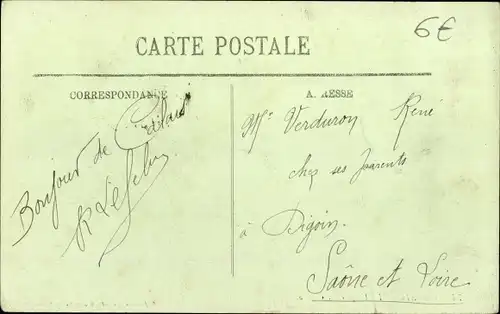 6€
CARTE POSTALE
CORRESPONDANCE
A RESSE
Bonjour de
Mr Verduron René
chez ses parents
à Digoin
Saône et Loire